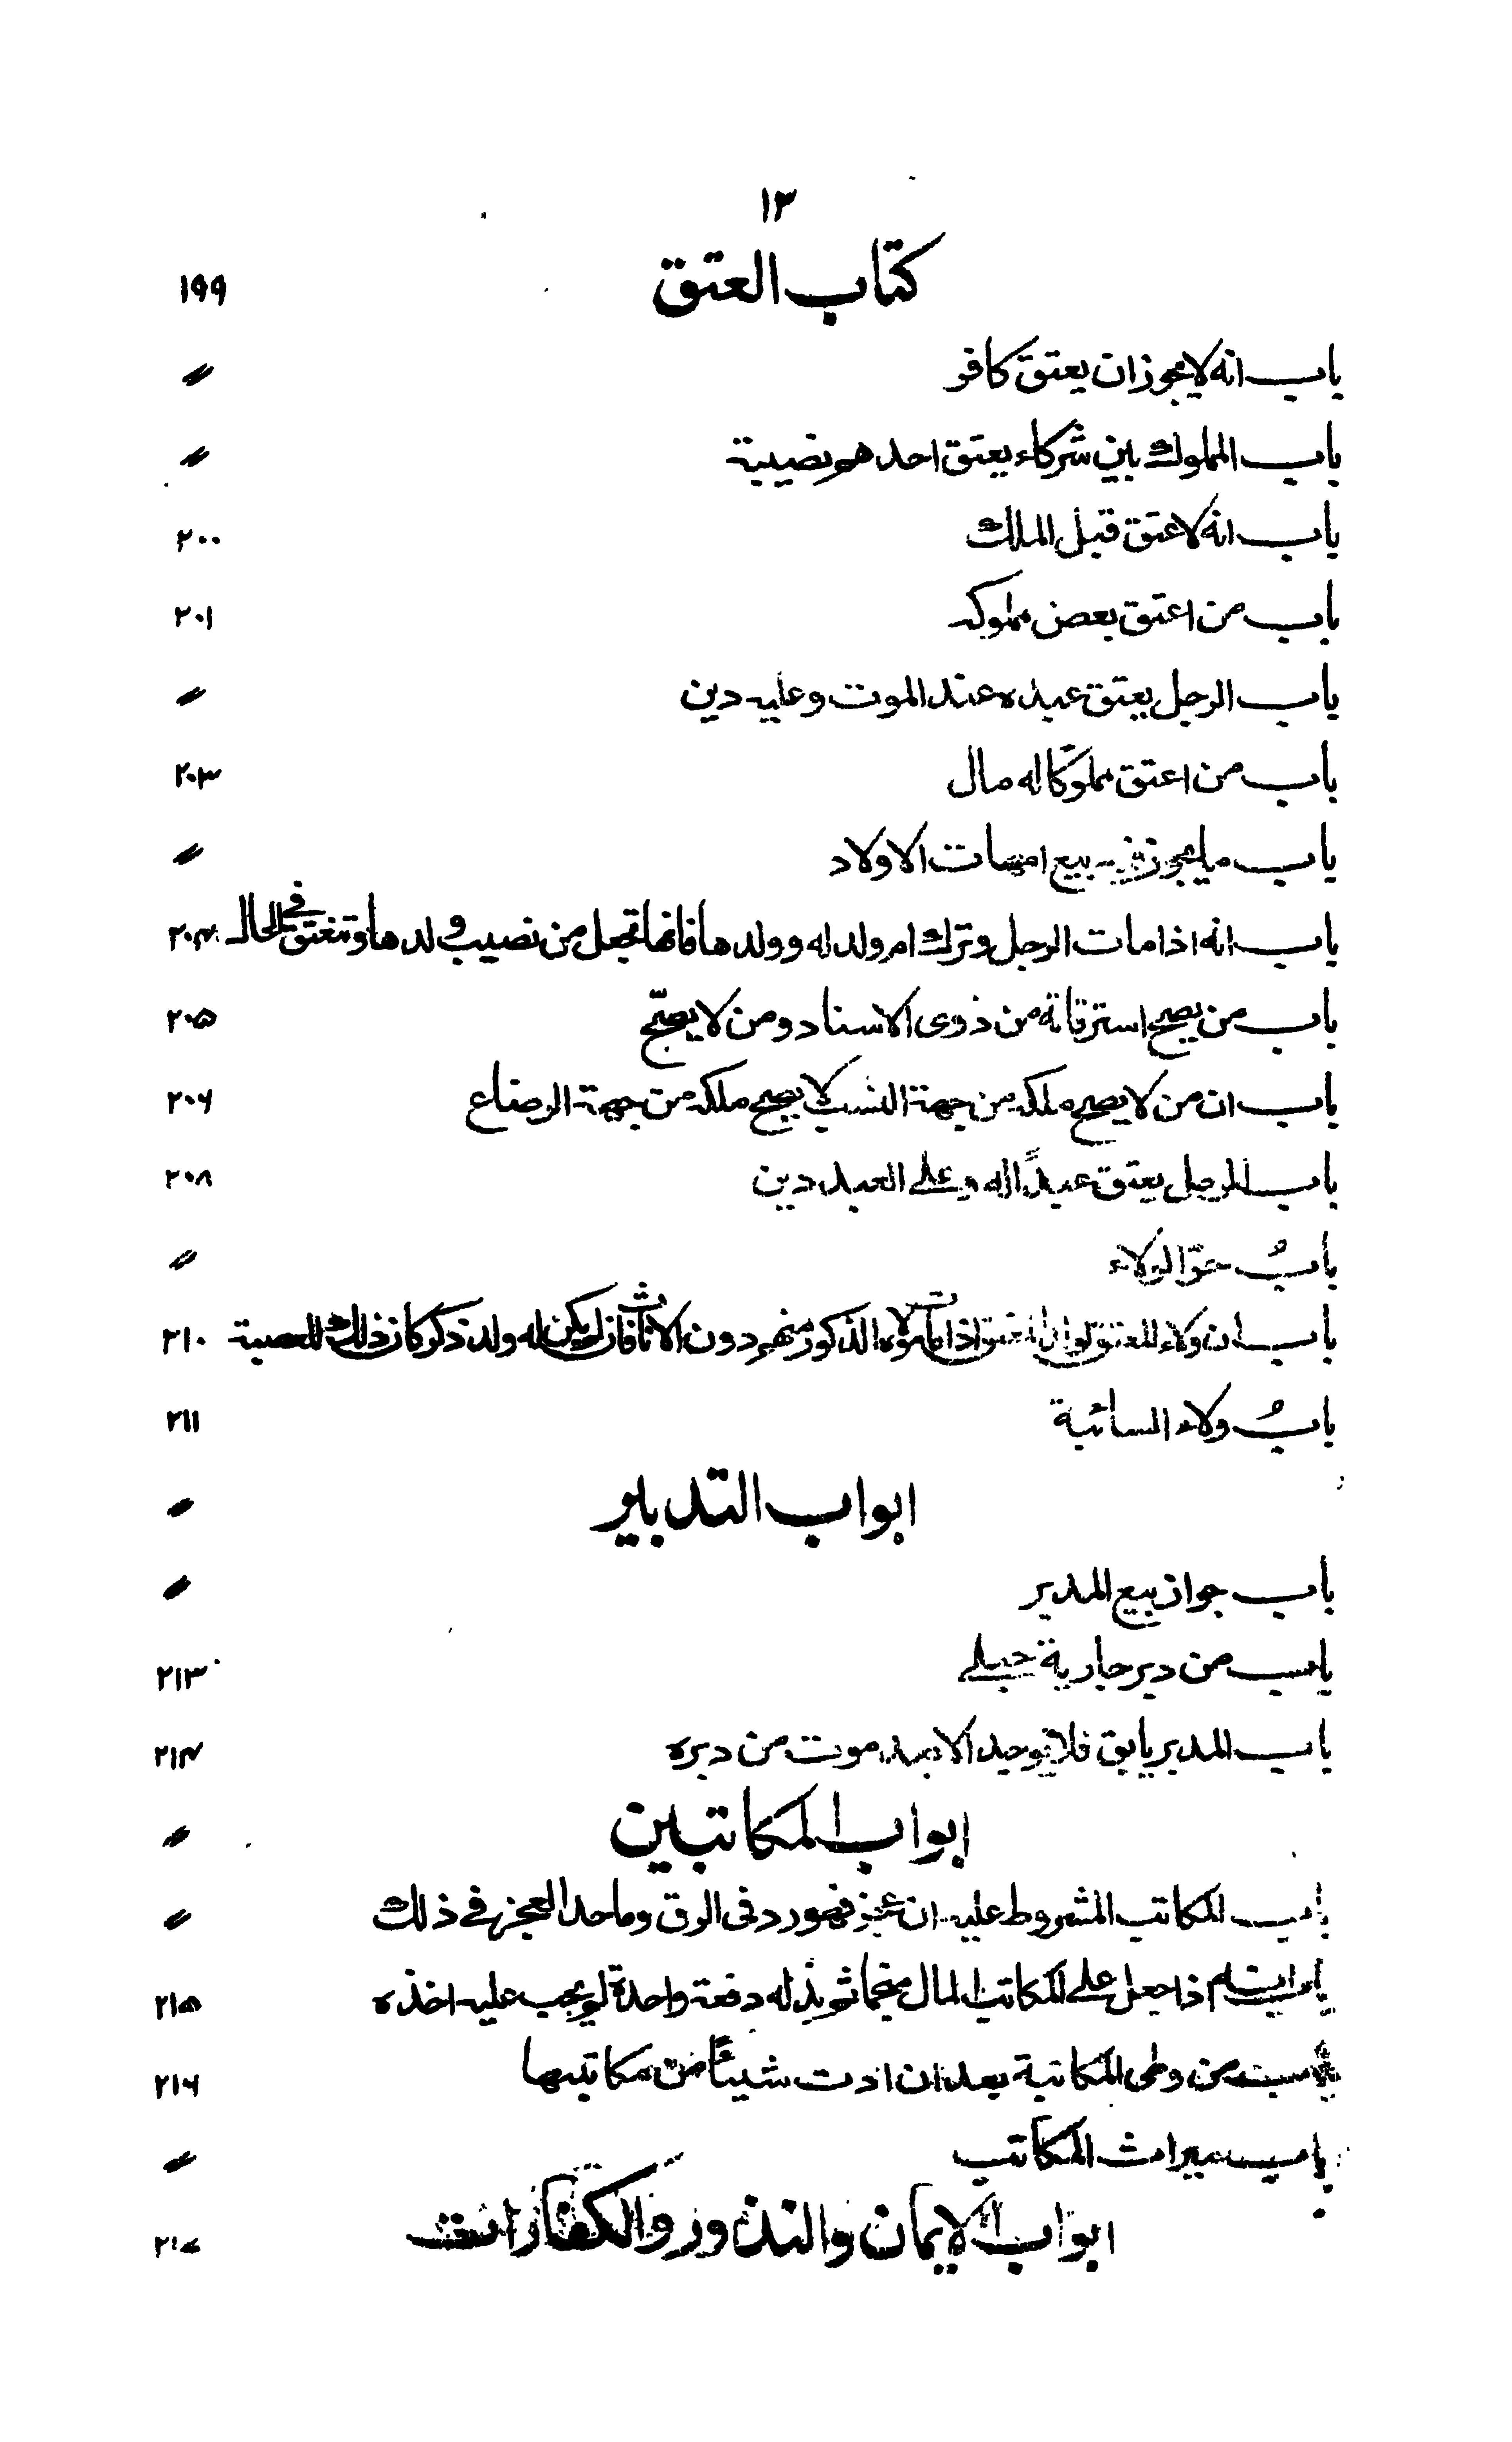 ١٣
كتاب العتق ١٩٩
باب انه لا يجوز ان يعتق كافر 〃
باب المملوك بين شركاء يعتق احدهم نصيبة 〃
باب انه لا عتق قبل الملك ٢٠٠
باب من اعتق بعض مملوكه ٢٠١
باب الرجل يعتق عبده عند الموت وعليه دين 〃
باب من اعتق مملوكًا له مال ٢٠٣
باب ما يجوز فيه بيع امهات الاولاد 〃
باب انه اذا مات الرجل وترك ام ولد له وولدها فانها تجعل من نصيب ولدها وتنعتق في الحال ٢٠٤
باب من يصح استرقاقه من ذوى الانساد ومن لا يصحّ ٢٠٥
باب ان من لا يصح ملكه من جهة النسب لا يصح ملكه من جهة الرضاع ٢٠٦
باب الرجل يعتق عبدًا له وعلى العبد دين ٢٠٨
بابُ جرّ الولاء 〃
باب ان ولاء المعتق لولد المعتق اذا مات مولاه الذكور منهم دون الاناث فان لم يكن له ولد ذكر كان ذلك للعصبة ٢١٠
بابُ ولاء السائبة ٢١١
ابواب التدبير 〃
باب جواز بيع المدبر 〃
باب من دبر جارية حبلى ٢١٣
باب المدبر يابق فلا يوجد الا بعد موت من دبره ٢١٤
ابواب المكاتبين 〃
باب المكاتب المشروط عليه ان عجز فهو رد فى الرق وما حد العجز في ذلك 〃
اذا جعل على المكاتب المال منجما ثم بذله دفعة واحدة لم يجب عليه اخذه ٢١٥
من وطى المكاتبة بعد ان ادت شيئًا من مكاتبتها ٢١٦
باب ميراث المكاتب 〃
ابواب الايمان والنذور والكفارات ٢١٧